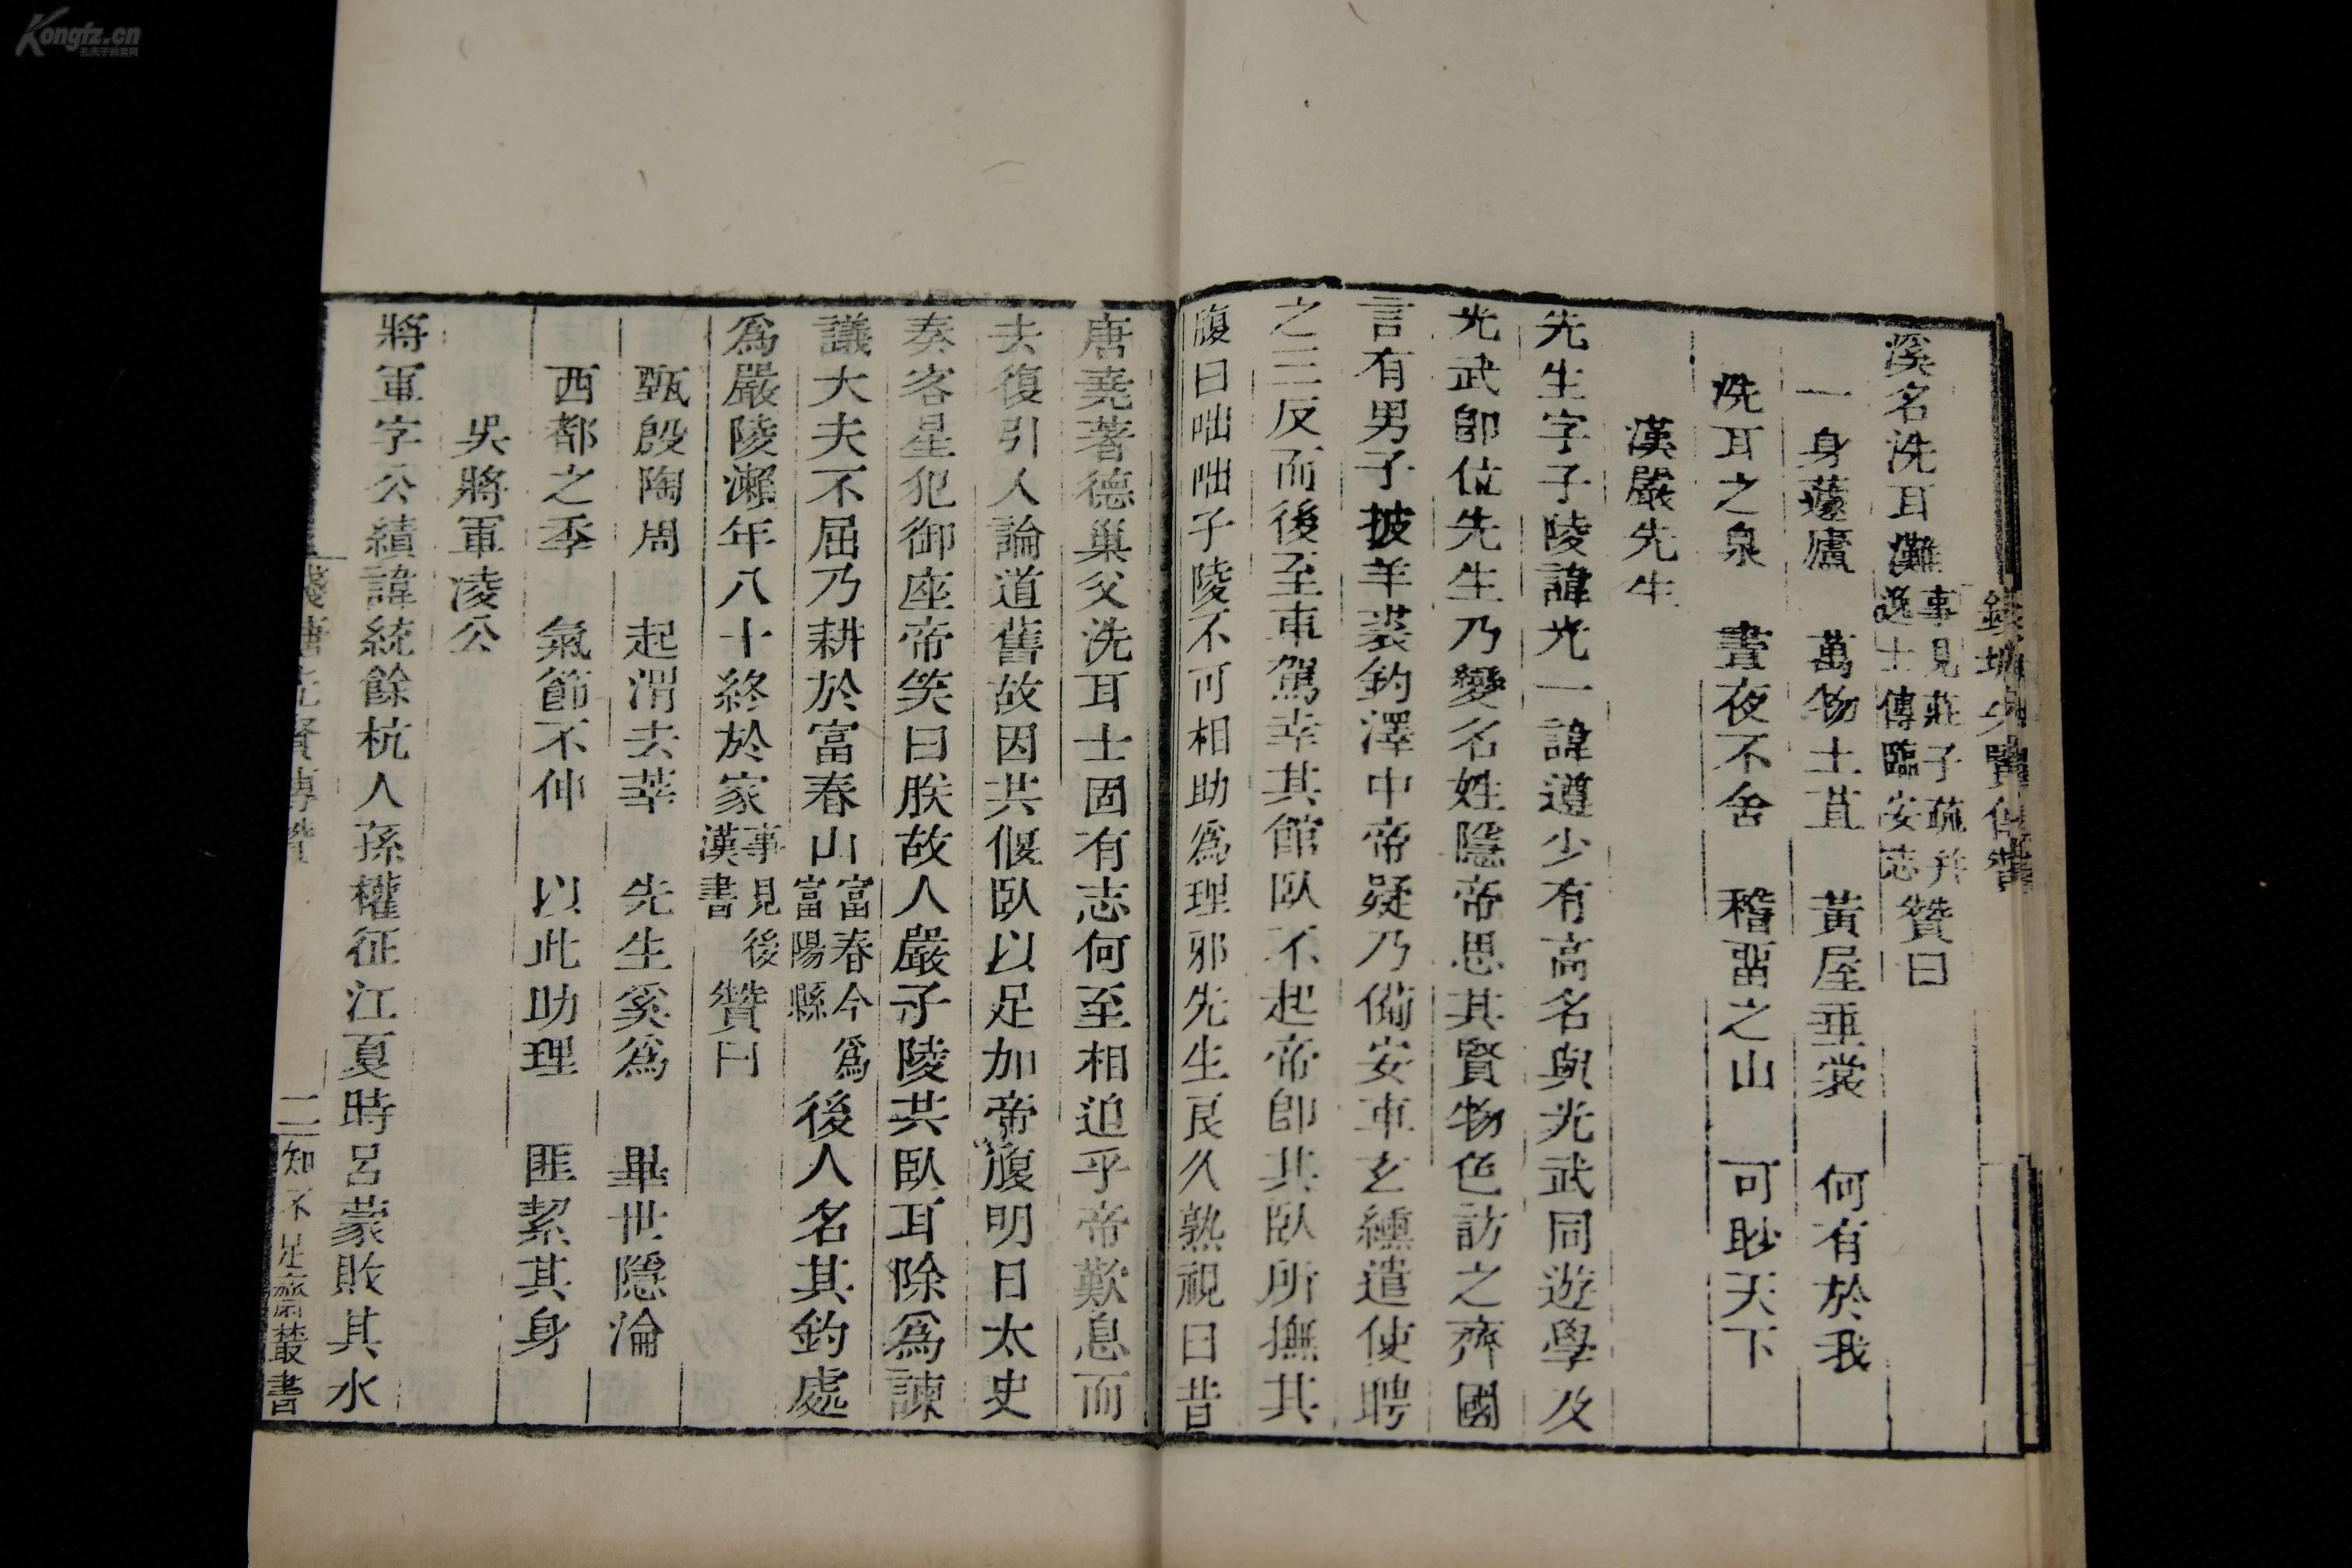 溪名洗耳灘事見莊子疏并逸士傳臨安志贊曰
一身蘧廬 萬物土苴 黃屋垂裳 何有於我
洗耳之泉 晝夜不舍 稽畱之山 可眇天下
漢嚴先生
先生字子陵諱光一諱遵少有高名與光武同遊學及
光武卽位先生乃變名姓隱帝思其賢物色訪之齊國
言有男子披羊裘釣澤中帝疑乃備安車玄纁遣使聘
之三反而後至車駕幸其館臥不起帝卽其臥所撫其
腹曰咄咄子陵不可相助爲理邪先生良久熟視曰昔
唐堯著德巢父洗耳士固有志何至相迫乎帝歎息而
去復引人論道舊故因共偃臥以足加帝腹明日太史
奏客星犯御座帝笑曰朕故人嚴子陵共臥耳除爲諫
議大夫不屈乃耕於富春山富春今爲富陽縣後人名其釣處
爲嚴陵瀨年八十終於家事見後漢書贊曰
甄殷陶周 起渭去莘 先生奚爲 畢世隱淪
西都之季 氣節不伸 以此助理 匪絜其身
吳將軍凌公
將軍字公績諱統餘杭人孫權征江夏時呂蒙敗其水
錢塘先賢傳贊
二
知不足齋叢書
Kongfz.cn
孔夫子拍卖网